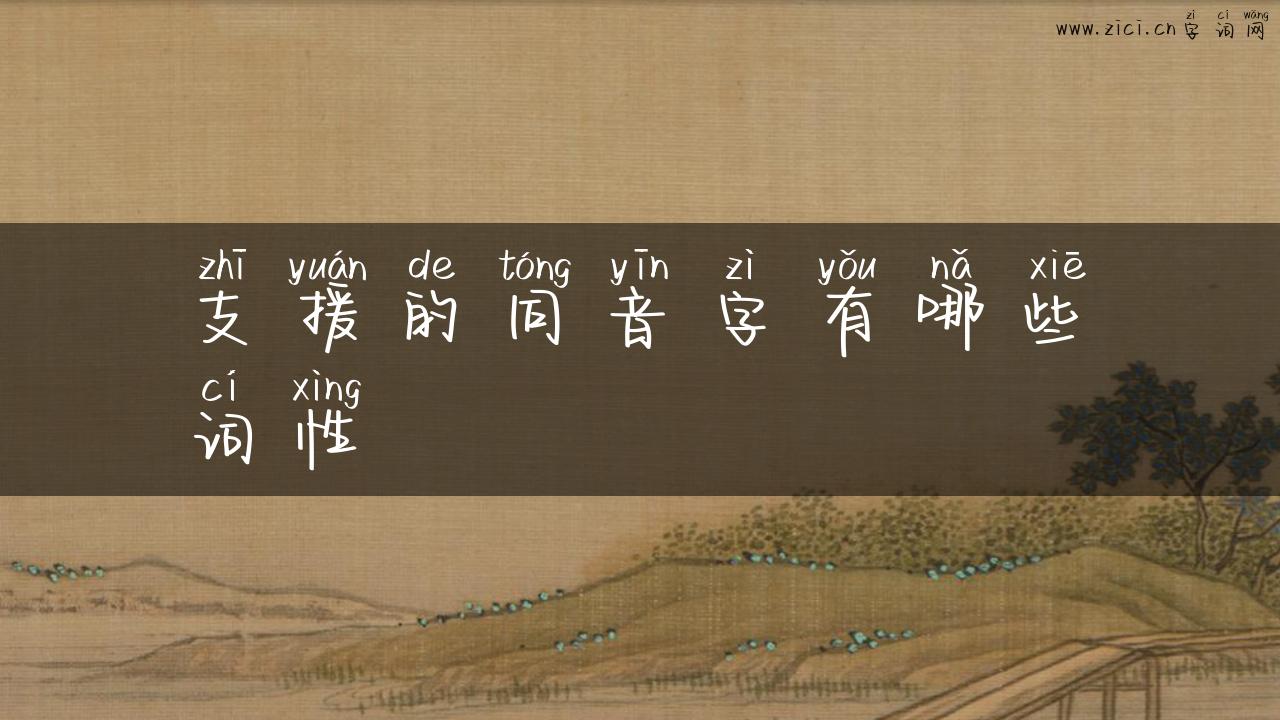 zì cí wǎng
www.zici.cn字词网
zhī yuán de tóng yīn zì yǒu nǎ xiē
支援的同音字有哪些
cí xìng
词性